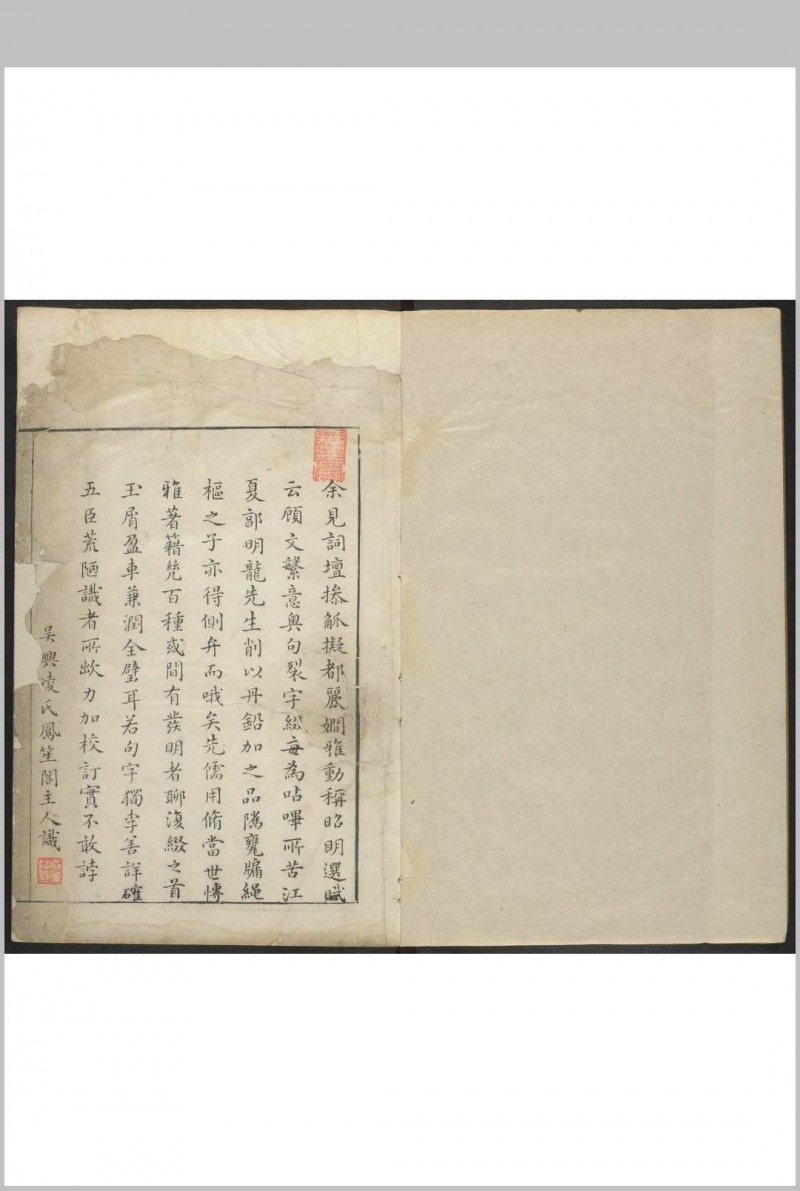 余見詞壇摻觚擬都麗嫺雅動稱昭明選賦
云顧文繁意奥句裂字綜每為呫嗶所苦江
夏郭明龍先生削以丹鉛加之品隲甕牖繩
樞之子亦得側弁而哦矣先儒用脩當世博
雅著籍凭百種或間有發明者聊復綴之首
玉屑盈車兼潤全璧耳若句字獨李善詳確
五臣荒陋識者所欰力加校訂實不敢誖
吳興凌氏鳳笙閣主人識